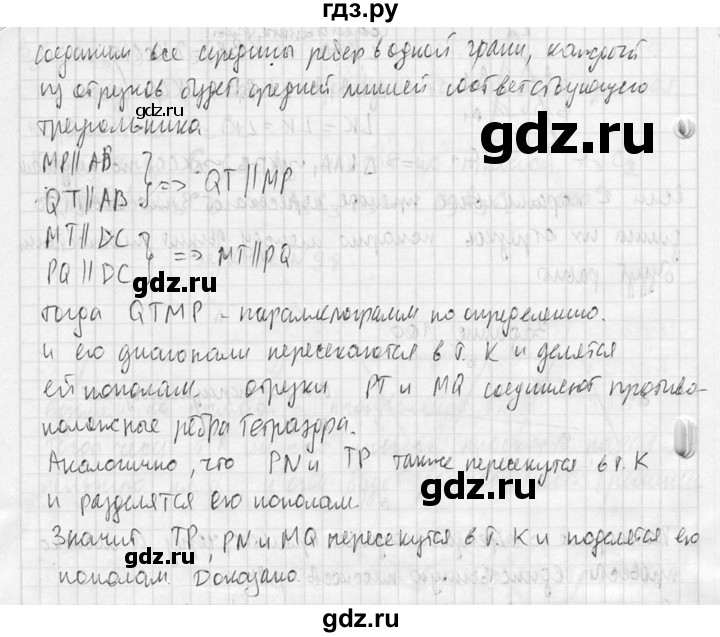 гдз.ру
соединим все середины ребер в одной грани, каждый
из отрезков будет средней линией соответствующего
gdz.ru
gdz.ru
треугольника
MP||AB
=> QT||MP
QT||AB
MT||DC
=> MT||PQ
PQ||DC
gdz.ru
gdz.ru
тогда QTMP - параллелограмм по определению.
и его диагонали пересекаются в т. K и делятся
ей пополам, отрезки PT и MQ соединяют противо-
gdz.ru
положные рёбра тетраэдра.
gdz.ru
Аналогично, что PN и TP также пересекутся в т. K
и разделятся ею пополам.
gdz.ru
Значит TP, PN и MQ пересекутся в т. K и поделятся ею
пополам. Доказано.
gdz.ru
gdz.ru